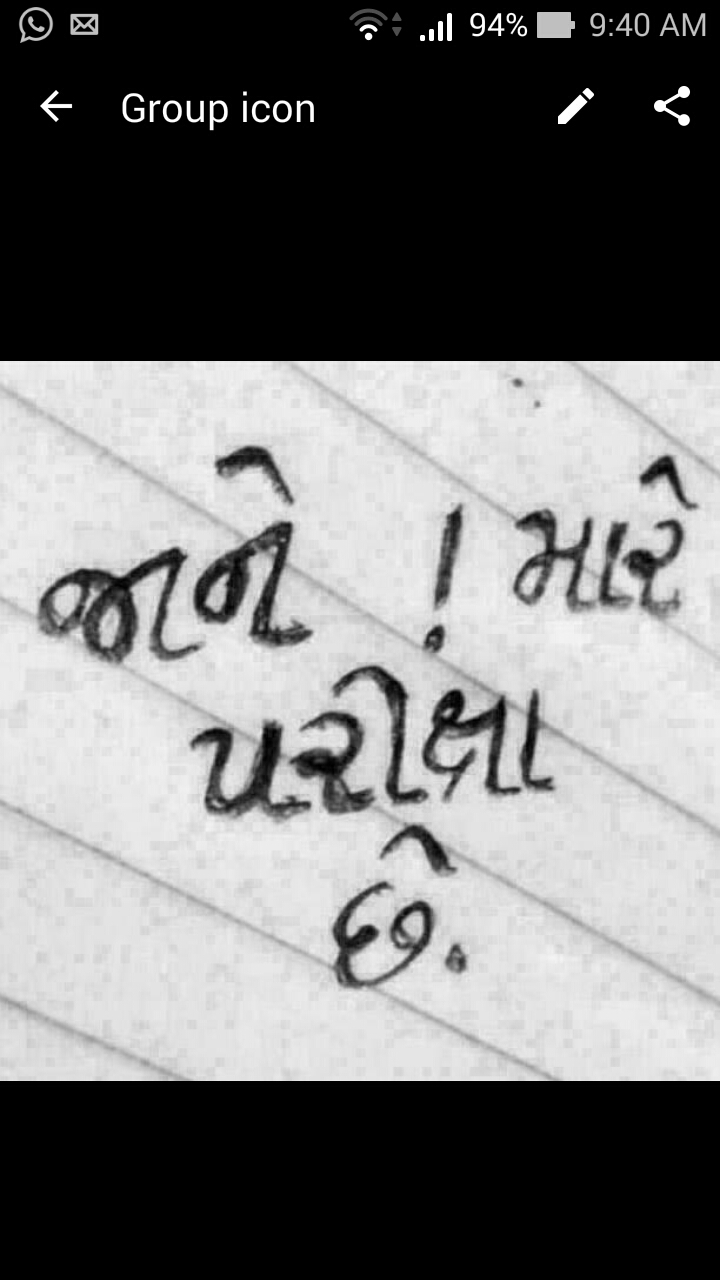 94% 9:40 AM
Group icon
જાને ! મારે
પરીક્ષા
છે.